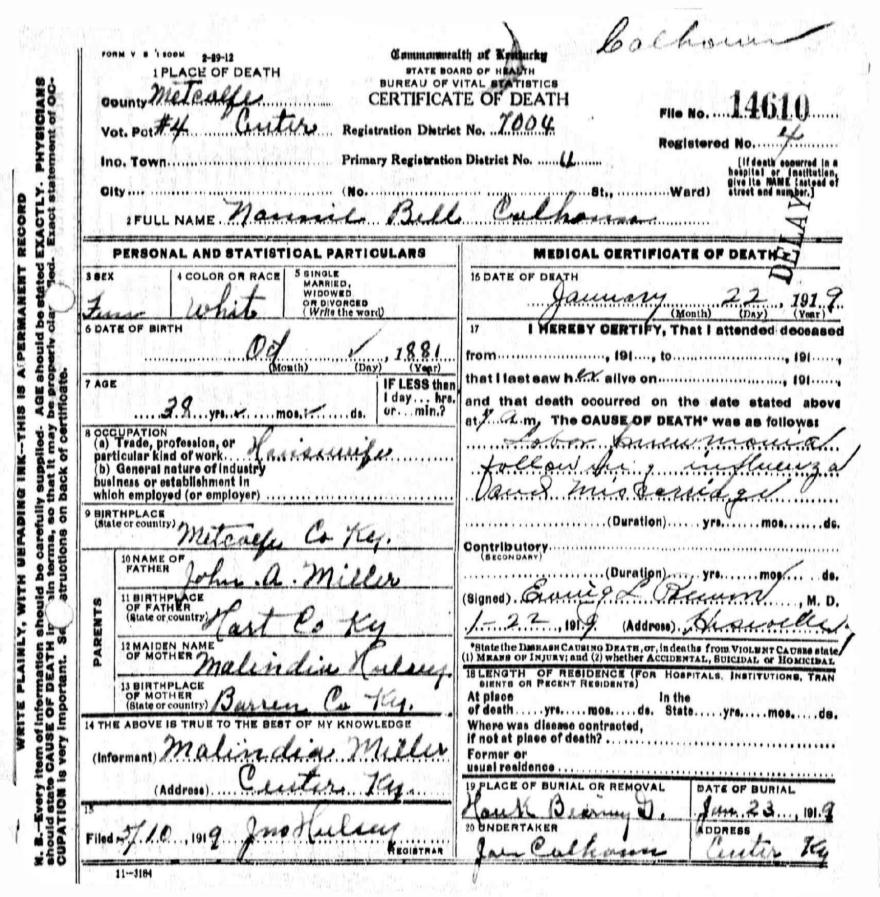 Calhoun
FORM V S 1 500M 2-29-12
Commonwealth of Kentucky
STATE BOARD OF HEALTH
BUREAU OF VITAL STATISTICS
CERTIFICATE OF DEATH
1 PLACE OF DEATH
County Metcalfe
Vot. Pct #4 Center
Registration District No. 7004
File No. 14610
Registered No. 4
Inc. Town
Primary Registration District No. 4
[If death occurred in a
hospital or institution,
give its NAME instead of
street and number.]
City (No. St., Ward)
2 FULL NAME Nannie Bell Calhoun
DELAY
PERSONAL AND STATISTICAL PARTICULARS
3 SEX 4 COLOR OR RACE 5 SINGLE
MARRIED,
WIDOWED
OR DIVORCED
(Write the word)
Fem White
6 DATE OF BIRTH
Oct , 1881
(Month) (Day) (Year)
7 AGE IF LESS than
1 day... hrs.
38 yrs. mos. ds. or... min.?
8 OCCUPATION
(a) Trade, profession, or
particular kind of work Housewife
(b) General nature of industry
business or establishment in
which employed (or employer)
9 BIRTHPLACE
(State or country) Metcalfe Co Ky.
PARENTS
10 NAME OF
FATHER John A. Miller
11 BIRTHPLACE
OF FATHER
(State or country) Hart Co Ky
12 MAIDEN NAME
OF MOTHER Malindia Hulsey
13 BIRTHPLACE
OF MOTHER
(State or country) Barren Co Ky.
14 THE ABOVE IS TRUE TO THE BEST OF MY KNOWLEDGE
(Informant) Malindia Miller
(Address) Center Ky.
15
Filed 3/10 1919 Jno Hulsey
REGISTRAR
11-3184
MEDICAL CERTIFICATE OF DEATH
16 DATE OF DEATH
January 22, 1919
(Month) (Day) (Year)
17 I HEREBY CERTIFY, That I attended deceased
from , 191 , to , 191 ,
that I last saw her alive on , 191 ,
and that death occurred on the date stated above
at 7 a.m. The CAUSE OF DEATH* was as follows:
Lobar pneumonia
following influenza
and miscarriage
(Duration) yrs. mos. ds.
Contributory
(SECONDARY)
(Duration) yrs. mos. ds.
(Signed) L , M. D.
1-22, 1919 (Address) Hiseville
*State the DISEASE CAUSING DEATH, or, in deaths from VIOLENT CAUSES state
(1) MEANS OF INJURY; and (2) whether ACCIDENTAL, SUICIDAL or HOMICIDAL
18 LENGTH OF RESIDENCE (FOR HOSPITALS, INSTITUTIONS, TRAN
SIENTS OR RECENT RESIDENTS)
At place In the
of death yrs. mos. ds. State yrs. mos. ds.
Where was disease contracted,
if not at place of death?
Former or
usual residence
19 PLACE OF BURIAL OR REMOVAL DATE OF BURIAL
G. Jan 23, 1919
20 UNDERTAKER ADDRESS
Calhoun Center Ky
WRITE PLAINLY, WITH UNFADING INK—THIS IS A PERMANENT RECORD
N. B.—Every item of information should be carefully supplied. AGE should be stated EXACTLY. PHYSICIANS
should state CAUSE OF DEATH in plain terms, so that it may be properly Exact statement of OC-
CUPATION is very important. See instructions on back of certificate.